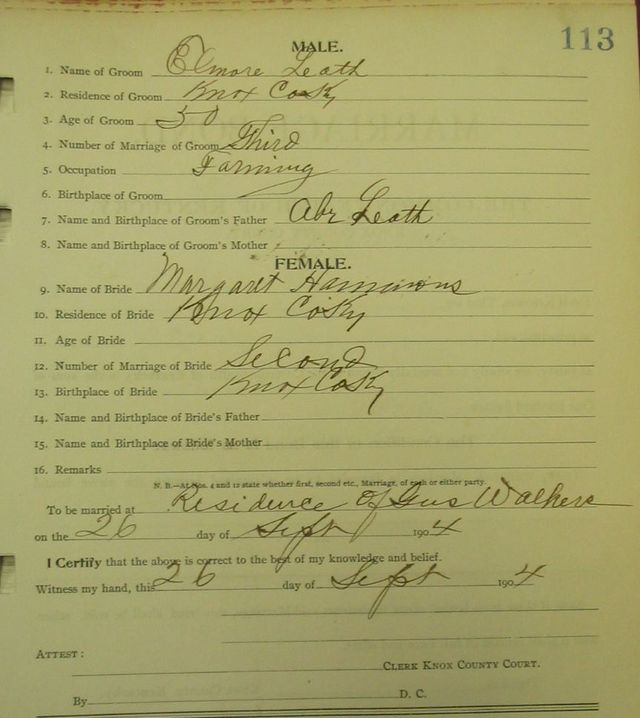 113
MALE.
1. Name of Groom Elmore Leath
2. Residence of Groom Knox Co Ky
3. Age of Groom 50
4. Number of Marriage of Groom Third
5. Occupation Farming
6. Birthplace of Groom
7. Name and Birthplace of Groom's Father Abr Leath
8. Name and Birthplace of Groom's Mother
FEMALE.
9. Name of Bride Margaret Hammons
10. Residence of Bride Knox Co Ky
11. Age of Bride
12. Number of Marriage of Bride Second
13. Birthplace of Bride Knox Co Ky
14. Name and Birthplace of Bride's Father
15. Name and Birthplace of Bride's Mother
16. Remarks
N. B.—At Nos. 4 and 12 state whether first, second etc., Marriage, of each or either party.
To be married at Residence of Gus Walkers
on the 26 day of Sept 1904
I Certify that the above is correct to the best of my knowledge and belief.
Witness my hand, this 26 day of Sept 1904
ATTEST:
CLERK KNOX COUNTY COURT.
By D. C.